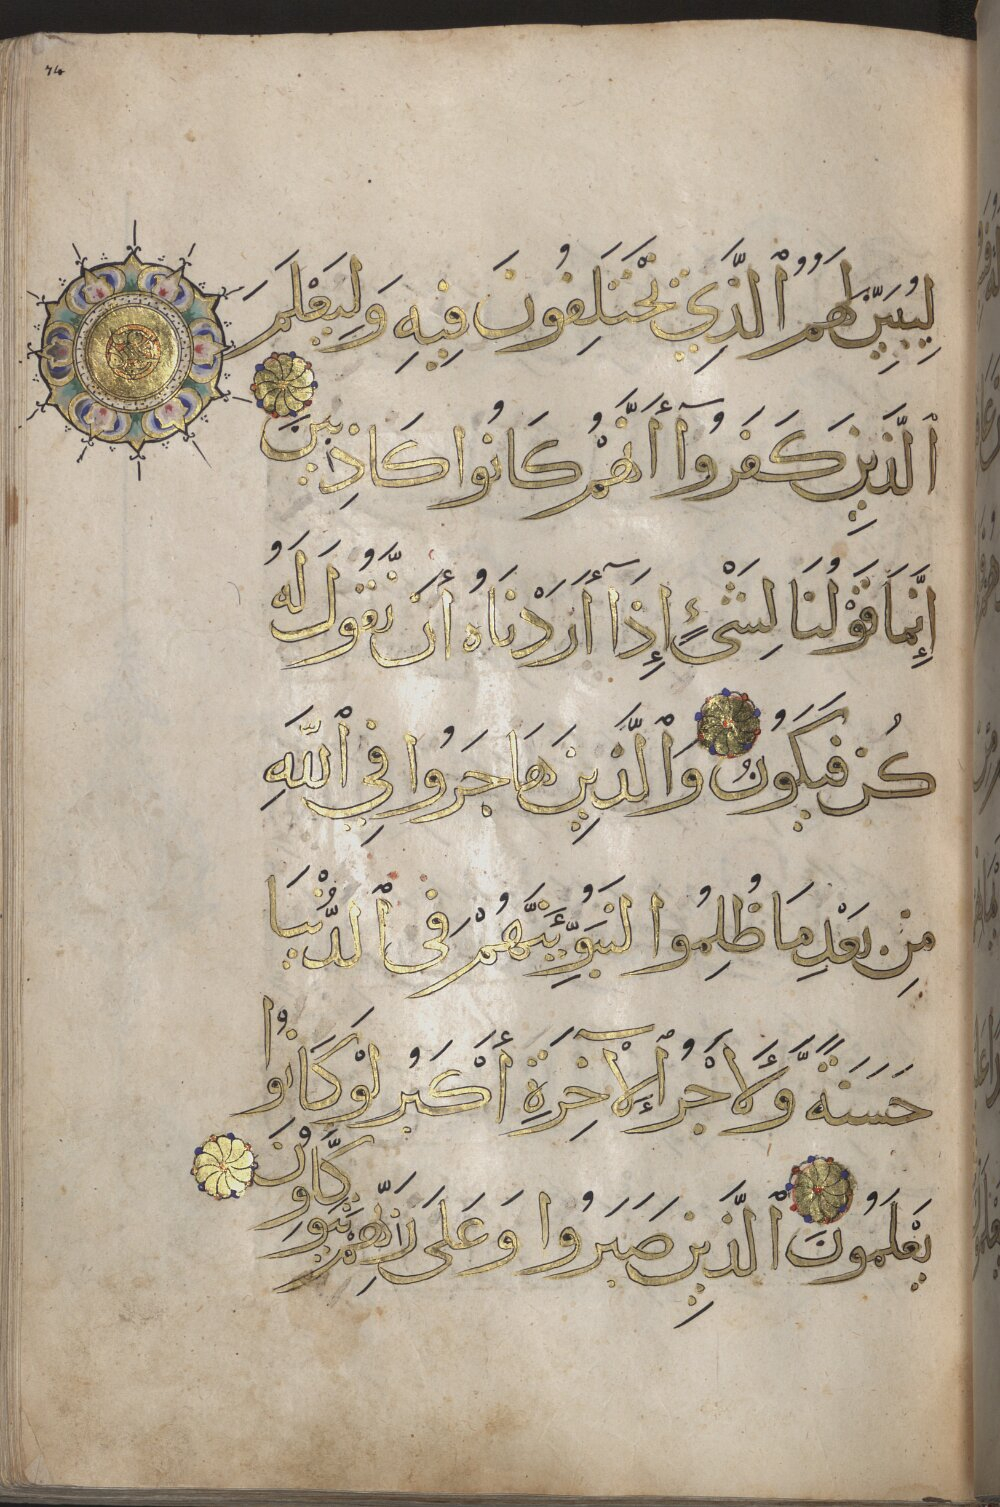 لِيُبَيِّنَ لَهُمُ ٱلَّذِي تَخْتَلِفُونَ فِيهِ وَلِيَعْلَمَ
ٱلَّذِينَ كَفَرُوٓا أَنَّهُمْ كَانُوا كَاذِبِينَ
إِنَّمَا قَوْلُنَا لِشَىْءٍ إِذَآ أَرَدْنَاهُ أَن نَّقُولَ لَهُ
كُن فَيَكُونُ وَٱلَّذِينَ هَاجَرُوا فِي ٱللَّهِ
مِن بَعْدِ مَا ظُلِمُوا لَنُبَوِّئَنَّهُمْ فِى ٱلدُّنْيَا
حَسَنَةً وَّلَأَجْرُ ٱلْآخِرَةِ أَكْبَرُ لَوْ كَانُوا
يَعْلَمُونَ ٱلَّذِينَ صَبَرُوا وَعَلَىٰ رَبِّهِمْ يَتَوَكَّلُونَ